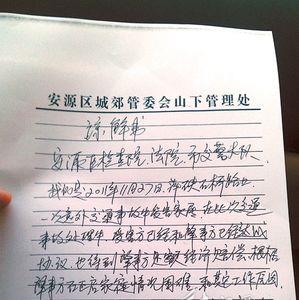 安源区城郊管委会山下管理处
谅解书
安源区检察院、法院、市交警大队
我们是2011年11月27日,萍
一次意外交通事故中受害家庭,在此次交通
事故处理中,受害方已经和肇事方已经达成
协议,也得到肇事方经济赔偿,根据
肇事方家庭情况困难,和其工作原因